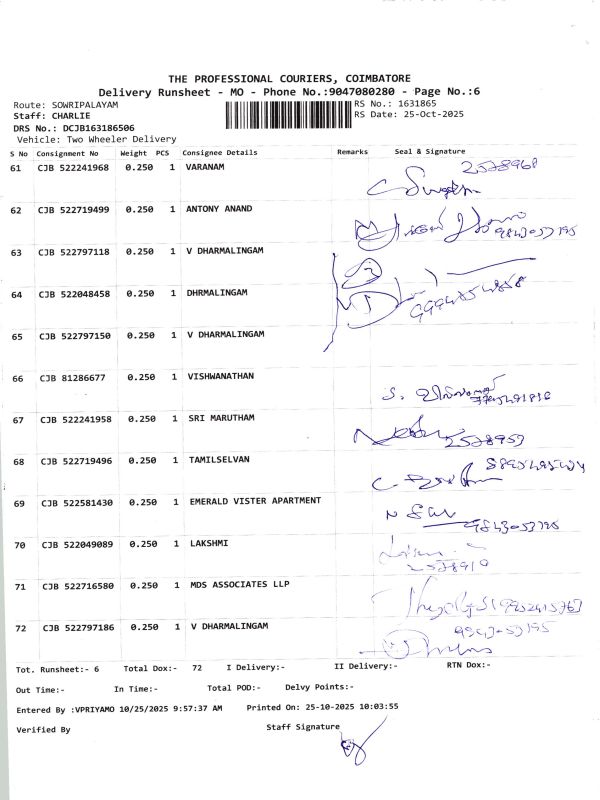 THE PROFESSIONAL COURIERS, COIMBATORE
Delivery Runsheet - MO - Phone No.:9047080280 - Page No.:6
Route: SOWRIPALAYAM RS No.: 1631865
Staff: CHARLIE RS Date: 25-Oct-2025
DRS No.: DCJB163186506
Vehicle: Two Wheeler Delivery
S No Consignment No Weight PCS Consignee Details Remarks Seal & Signature
61 CJB 522241968 0.250 1 VARANAM 2578968
62 CJB 522719499 0.250 1 ANTONY ANAND
9843053195
63 CJB 522797118 0.250 1 V DHARMALINGAM
64 CJB 522048458 0.250 1 DHRMALINGAM
65 CJB 522797150 0.250 1 V DHARMALINGAM
66 CJB 81286677 0.250 1 VISHWANATHAN
67 CJB 522241958 0.250 1 SRI MARUTHAM
2578953
68 CJB 522719496 0.250 1 TAMILSELVAN
69 CJB 522581430 0.250 1 EMERALD VISTER APARTMENT
9843053795
70 CJB 522049089 0.250 1 LAKSHMI
2578910
71 CJB 522716580 0.250 1 MDS ASSOCIATES LLP
72 CJB 522797186 0.250 1 V DHARMALINGAM
Tot. Runsheet:- 6 Total Dox:- 72 I Delivery:- II Delivery:- RTN Dox:-
Out Time:- In Time:- Total POD:- Delvy Points:-
Entered By :VPRIYAMO 10/25/2025 9:57:37 AM Printed On: 25-10-2025 10:03:55
Verified By Staff Signature